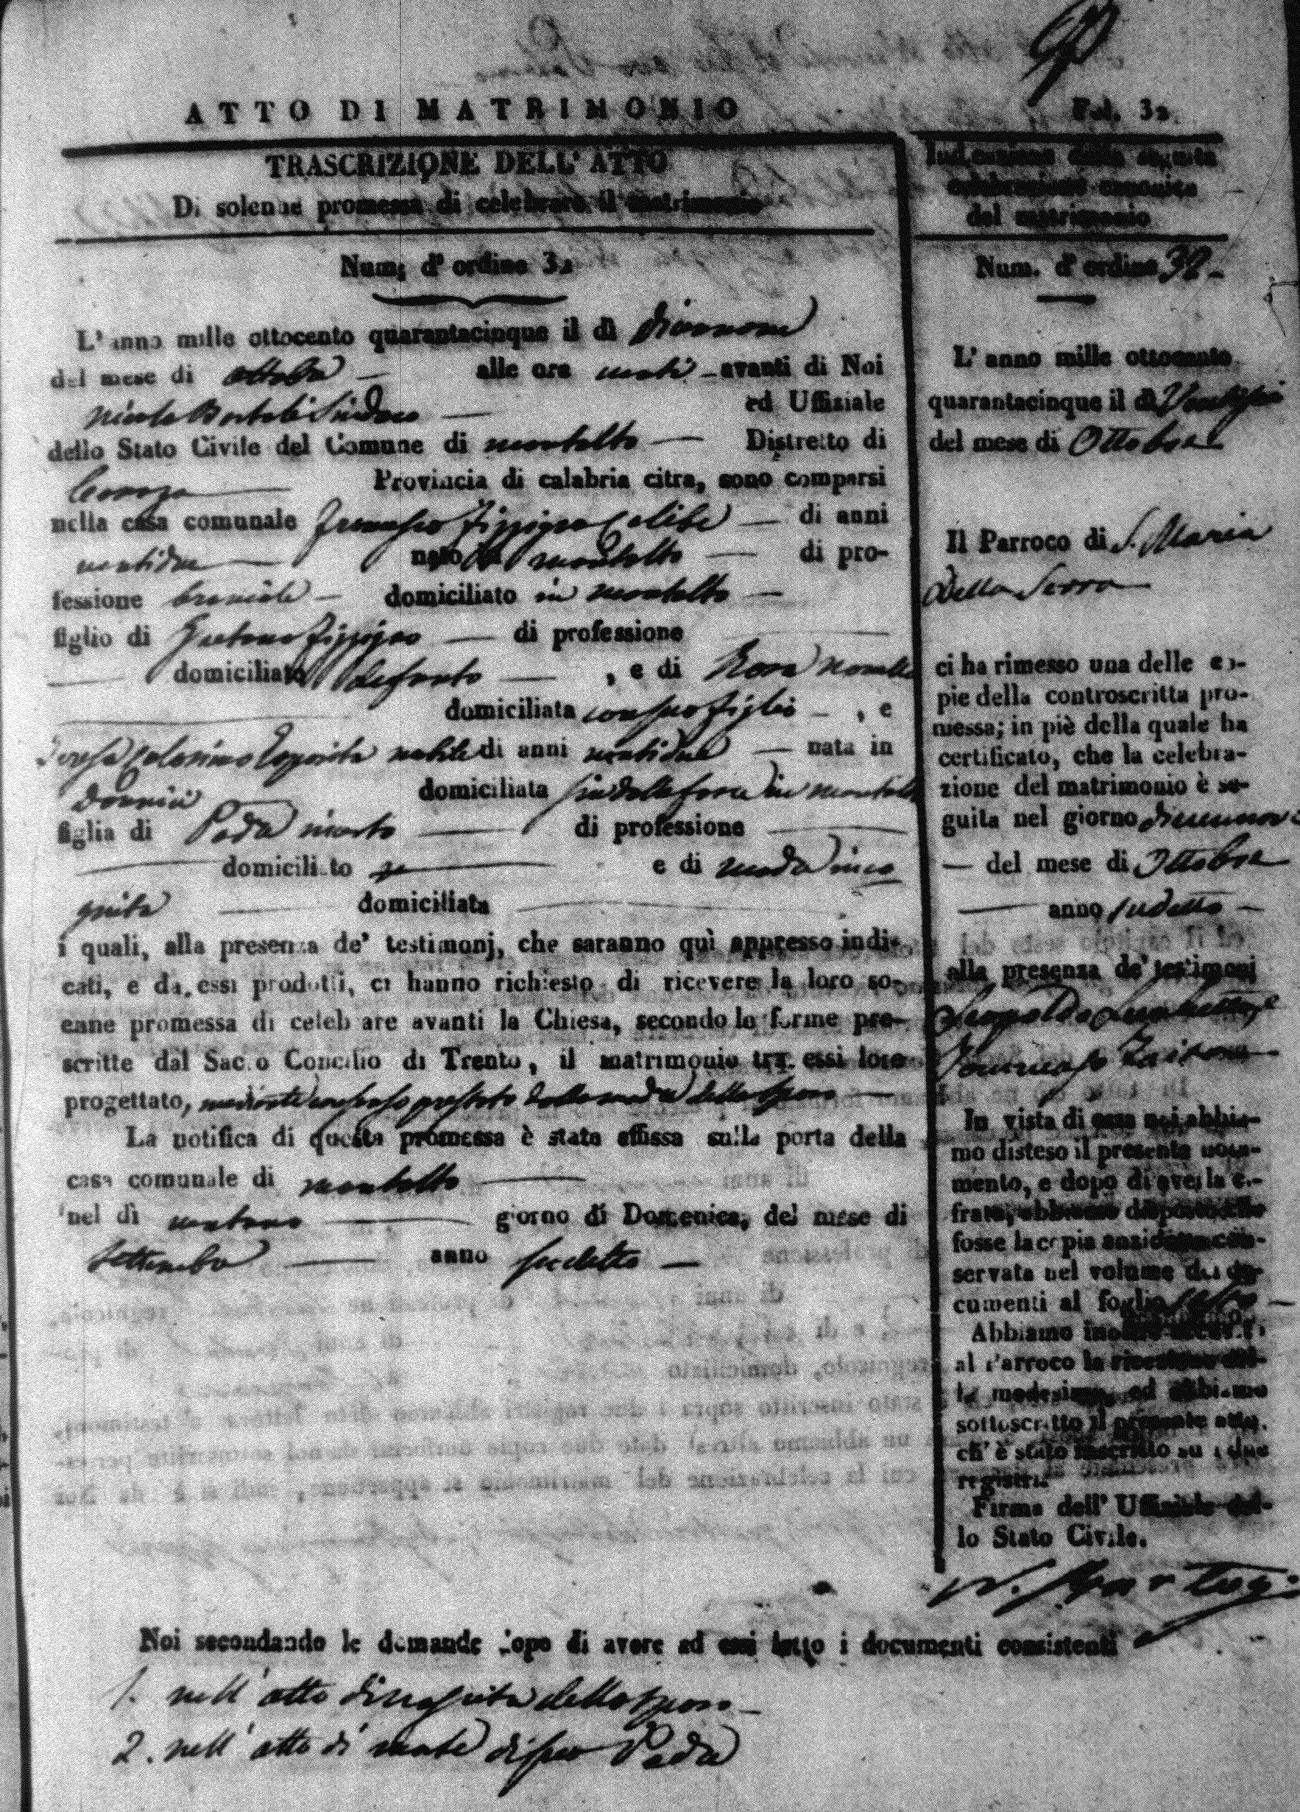 ATTO DI MATRIMONIO
Fol. 32
TRASCRIZIONE DELL' ATTO
Di solenne promessa di celebrare il matrimonio
Num: d' ordine 32
L' anno mille ottocento quarantacinque il dì diecinnove
del mese di ottobre alle ore venti avanti di Noi
Nicola Sindaco ed Uffiziale
dello Stato Civile del Comune di montalto Distretto di
Cosenza Provincia di calabria citra, sono comparsi
nella casa comunale Francesco Celibe di anni
ventidue nato in montalto di pro-
fessione bracciale domiciliato in montalto
figlio di Gaetano di professione
domiciliato defonto , e di Rosa
domiciliata con suo figlio , e
Teresa Colosimo Esposita nubile di anni ventidue nata in
domiciliata in montalto
figlia di Padre incerto di professione
domiciliato e di madre inco
gnita domiciliata
i quali, alla presenza de' testimonj, che saranno quì appresso indi-
cati, e da essi prodotti, ci hanno richiesto di ricevere la loro so-
enne promessa di celebrare avanti la Chiesa, secondo le forme pre-
scritte dal Sacro Concilio di Trento, il matrimonio tra essi loro
progettato, mediante consenso prestato dalla madre dello sposo
La notifica di questa promessa è stata affissa sulla porta della
casa comunale di montalto
nel dì ventuno giorno di Domenica, del mese di
Settembre anno suddetto
Indicazione della seguita
celebrazione canonica
del matrimonio
Num. d' ordine 32
L' anno mille ottocento
quarantacinque il dì
del mese di Ottobre
Il Parroco di S. Maria
Della Serra
ci ha rimesso una delle co-
pie della controscritta pro-
messa; in piè della quale ha
certificato, che la celebra-
zione del matrimonio è se-
guita nel giorno diecinnove
del mese di Ottobre
anno sudetto
alla presenza de' testimoni
Leopoldo
Tommaso
In vista di essa noi abbia-
mo disteso il presente nota-
mento, e dopo di averla ci-
frata, abbiamo disposto che
fosse la copia anzidetta con-
servata nel volume dei do-
cumenti al foglio
Abbiamo inoltre
al Parroco la ricezione del-
la medesima, ed abbiamo
sottoscritto il presente atto,
ch' è stato inscritto su i due
registri.
Firma dell' Uffiziale del-
lo Stato Civile.
Noi secondando le domande dopo di avere ad essi letto i documenti consistenti
1. nell' atto di nascita dello sposo
2. nell' atto di morte di suo Padre